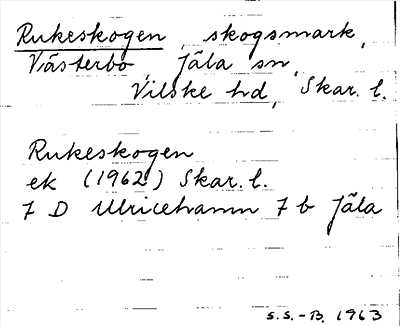 Rukeskogen, skogsmark,
Västerbo, Jäla sn,
Vilske hd, Skar. l.
Rukeskogen
ek (1962) Skar. l.
7 D Ulricehamn 7 b Jäla
S.S.-B. 1963